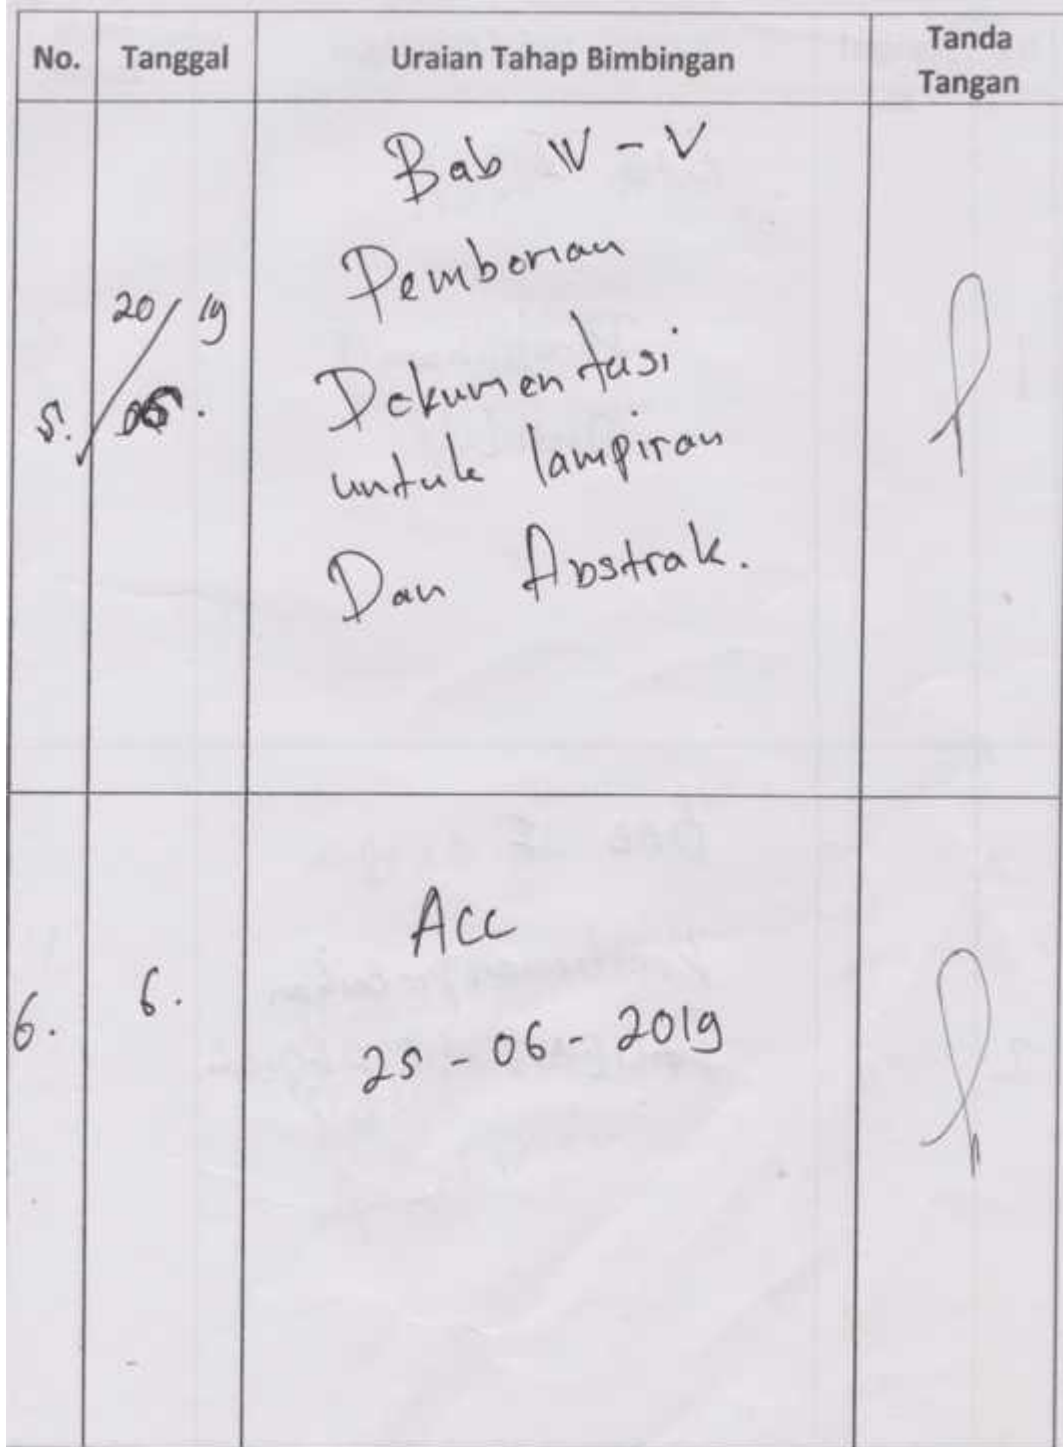 No. Tanggal Uraian Tahap Bimbingan Tanda Tangan
Bab IV - V
Pemberian
20/19
Dokumentasi
5. 05.
untuk lampiran
Dan Abstrak.
ACC
6. 6.
25 - 06 - 2019